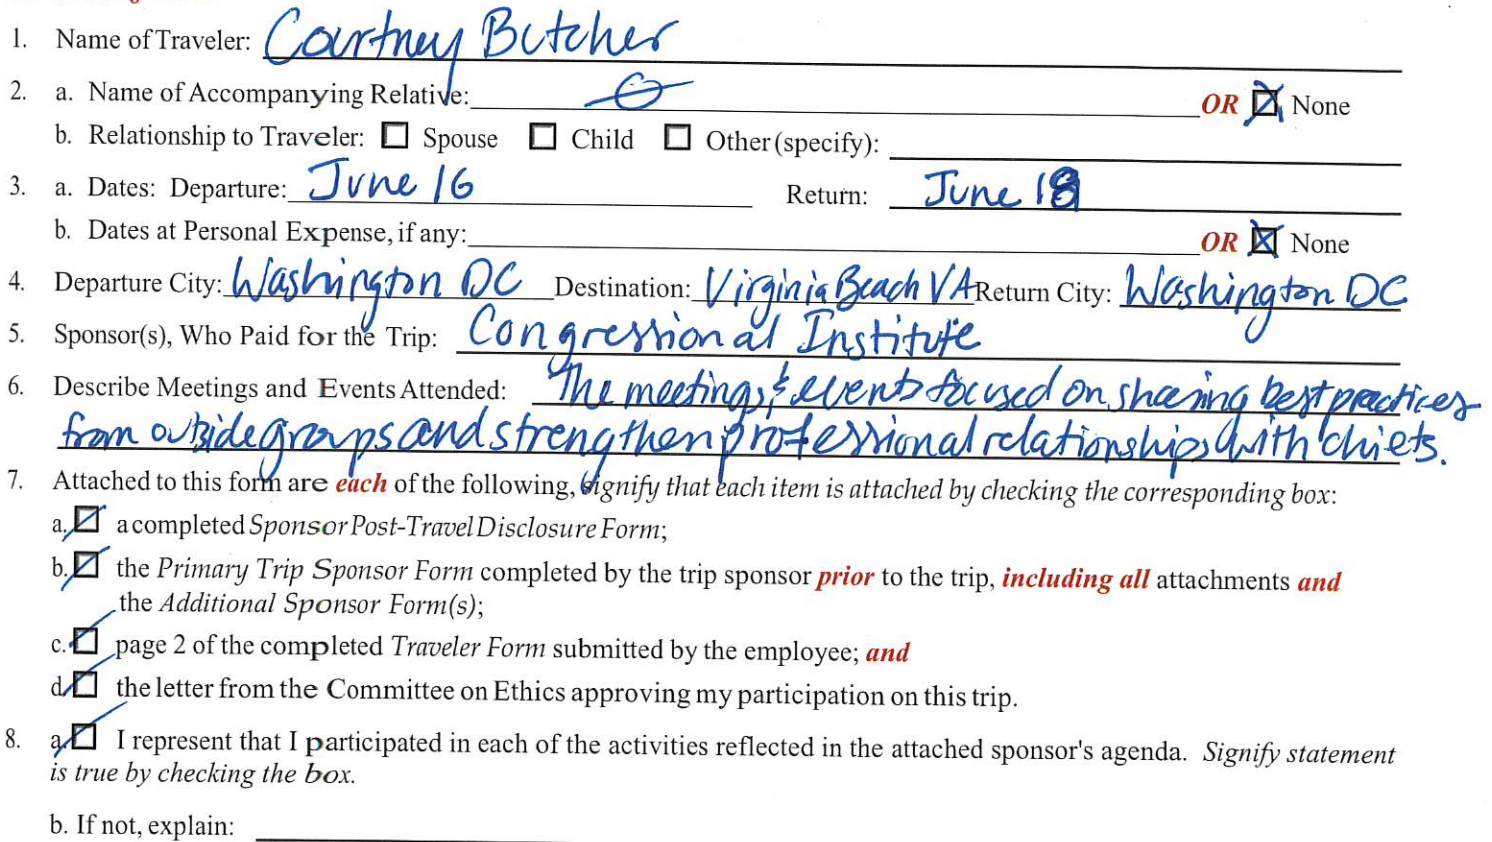 1. Name of Traveler: Courtney Butcher
2. a. Name of Accompanying Relative: OR ☒ None
b. Relationship to Traveler: ☐ Spouse ☐ Child ☐ Other (specify):
3. a. Dates: Departure: June 16 Return: June 18
b. Dates at Personal Expense, if any: OR ☒ None
4. Departure City: Washington DC Destination: Virginia Beach VA Return City: Washington DC
5. Sponsor(s), Who Paid for the Trip: Congressional Institute
6. Describe Meetings and Events Attended: The meetings & events focused on sharing best practices
from outside groups and strengthen professional relationships with chiefs.
7. Attached to this form are each of the following, signify that each item is attached by checking the corresponding box:
a. ☑ a completed Sponsor Post-Travel Disclosure Form;
b. ☑ the Primary Trip Sponsor Form completed by the trip sponsor prior to the trip, including all attachments and
the Additional Sponsor Form(s);
c. ☑ page 2 of the completed Traveler Form submitted by the employee; and
d. ☑ the letter from the Committee on Ethics approving my participation on this trip.
8. a. ☑ I represent that I participated in each of the activities reflected in the attached sponsor's agenda. Signify statement
is true by checking the box.
b. If not, explain: